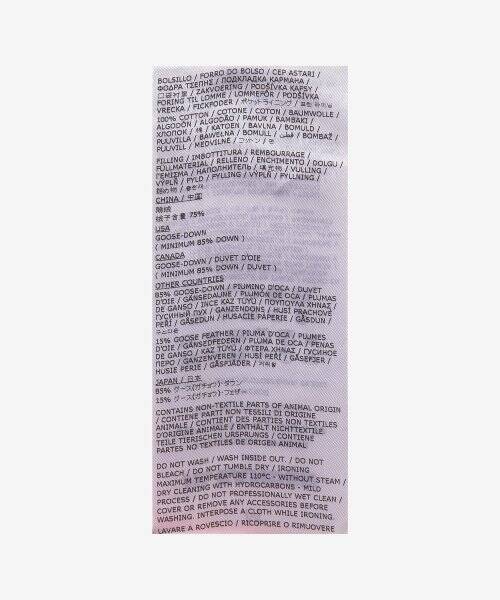 BOLSILLO / FORRO DO BOLSO / CEP ASTARI /
ΦΟΔΡΑ ΤΣΕΠΗΣ / ПОДКЛАДКА КАРМАНА /
口袋衬里 / ZAKVOERING / PODŠÍVKA KAPSY /
FORING TIL LOMME / LOMMEFÔR / PODŠÍVKA
VRECKA / FICKFODER / ポケットライニング /
100% COTTON / COTONE / COTON / BAUMWOLLE /
ALGODÓN / ALGODÃO / PAMUK / ΒΑΜΒΑΚΙ /
ХЛОПОК / 棉 / KATOEN / BAVLNA / BOMULD /
PUUVILLA / BAWEŁNA / BOMULL / قطن / BOMBAŽ /
PUUVILL / MEDVILNĖ / コットン / 면
FILLING / IMBOTTITURA / REMBOURRAGE /
FÜLLMATERIAL / RELLENO / ENCHIMENTO / DOLGU /
ΓΕΜΙΣΜΑ / НАПОЛНИТЕЛЬ / 填充物 / VULLING /
VÝPLŇ / FYLD / FYLLING / VÝPLŇ / FYLLNING /
詰め物 / 충전재
CHINA / 中国
鹅绒
绒子含量 75%
USA
GOOSE-DOWN
( MINIMUM 85% DOWN )
CANADA
GOOSE-DOWN / DUVET D'OIE
( MINIMUM 85% DOWN / DUVET )
OTHER COUNTRIES
85% GOOSE-DOWN / PIUMINO D'OCA / DUVET
D'OIE / GÄNSEDAUNE / PLUMÓN DE OCA / PLUMAS
DE GANSO / INCE KAZ TÜYÜ / ΠΟΥΠΟΥΛΑ ΧΗΝΑΣ /
ГУСИНЫЙ ПУХ / GANZENDONS / HUSÍ PRACHOVÉ
PEŘÍ / GÅSEDUN / HUSACIE PÁPERIE / GÅSDUN /
구스다운
15% GOOSE FEATHER / PIUMA D'OCA / PLUMES
D'OIE / GÄNSEFEDERN / PLUMA DE OCA / PENAS
DE GANSO / KAZ TÜYÜ / ΦΤΕΡΑ ΧΗΝΑΣ / ГУСИНОЕ
ПЕРО / GANZENVEREN / HUSÍ PEŘÍ / GÅSEFJER /
HUSIE PERIE / GÅSFJÄDER / 거위털
JAPAN / 日本
85% グース(ガチョウ) ダウン
15% グース(ガチョウ) フェザー
CONTAINS NON-TEXTILE PARTS OF ANIMAL ORIGIN
/ CONTIENE PARTI NON TESSILI DI ORIGINE
ANIMALE / CONTIENT DES PARTIES NON TEXTILES
D'ORIGINE ANIMALE / ENTHÄLT NICHTTEXTILE
TEILE TIERISCHEN URSPRUNGS / CONTIENE
PARTES NO TEXTILES DE ORIGEN ANIMAL
DO NOT WASH / WASH INSIDE OUT. / DO NOT
BLEACH / DO NOT TUMBLE DRY / IRONING
MAXIMUM TEMPERATURE 110°C - WITHOUT STEAM /
DRY CLEANING WITH HYDROCARBONS - MILD
PROCESS / DO NOT PROFESSIONALLY WET CLEAN /
COVER OR REMOVE ANY ACCESSORIES BEFORE
WASHING. INTERPOSE A CLOTH WHILE IRONING.
LAVARE A ROVESCIO / RICOPRIRE O RIMUOVERE